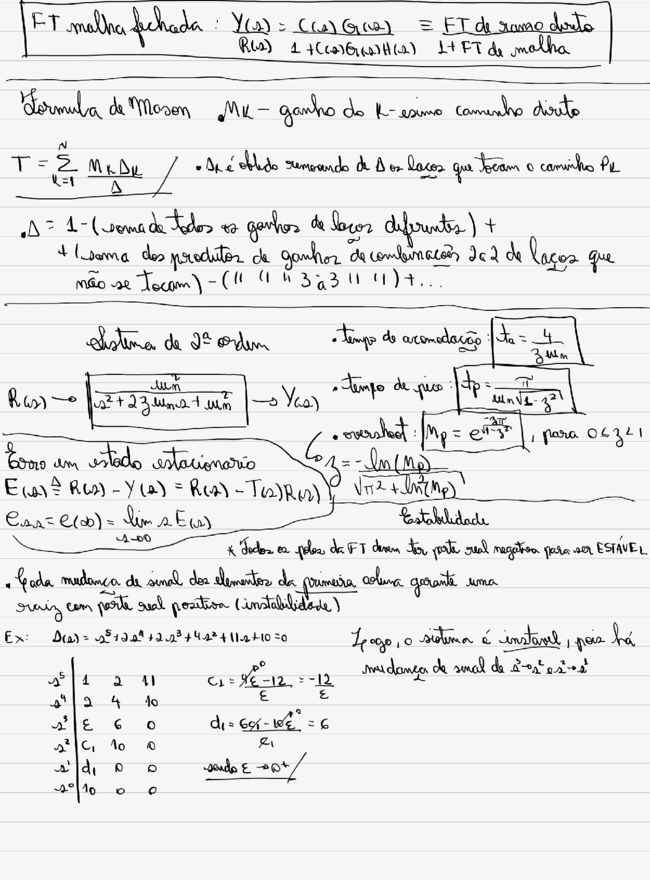 FT malha fechada : Y(s)/R(s) = C(s)G(s)/(1 + C(s)G(s)H(s)) ≡ FT de ramo direto/(1 + FT de malha)
Formula de Mason . MK - ganho do K-esimo caminho direto
T = Σ_{K=1}^{N} MK ΔK / Δ . ΔK é obtido removendo de Δ os laços que tocam o caminho PK
. Δ = 1 - (soma de todos os ganhos de laços diferentes) +
+ (soma dos produtos de ganhos de combinações 2 a 2 de laços que
não se tocam) - (" " " 3 à 3 " ") + ...
Sistema de 2ª ordem
. tempo de acomodação : ta = 4/(ξωn)
R(s) → ωn²/(s² + 2ξωns + ωn²) → Y(s)
. tempo de pico : tp = π/(ωn√(1-ξ²))
. overshoot : Mp = e^(-ξπ/√(1-ξ²)) , para 0<ξ<1
ξ = -ln(Mp)/√(π² + ln²(Mp))
Erro em estado estacionario
E(s) ≜ R(s) - Y(s) = R(s) - T(s)R(s)
ess = e(∞) = lim_{s→0} s E(s)
Estabilidade
* Todos os polos da FT devem ter parte real negativa para ser ESTÁVEL
. Cada mudança de sinal dos elementos da primeira coluna garante uma
raiz com parte real positiva (instabilidade)
Ex: Δ(s) = s⁵+2s⁴+2s³+4s²+11s+10=0
Logo, o sistema é instavel, pois há
mudança de sinal de s³→s² e s²→s¹
s⁵ | 1 2 11
s⁴ | 2 4 10
s³ | ε 6 0
s² | C1 10 0
s¹ | d1 0 0
s⁰ | 10 0 0
C1 = (4ε - 12)/ε = -12/ε
d1 = (6c1 - 10ε)/c1 = 6
sendo ε → 0⁺